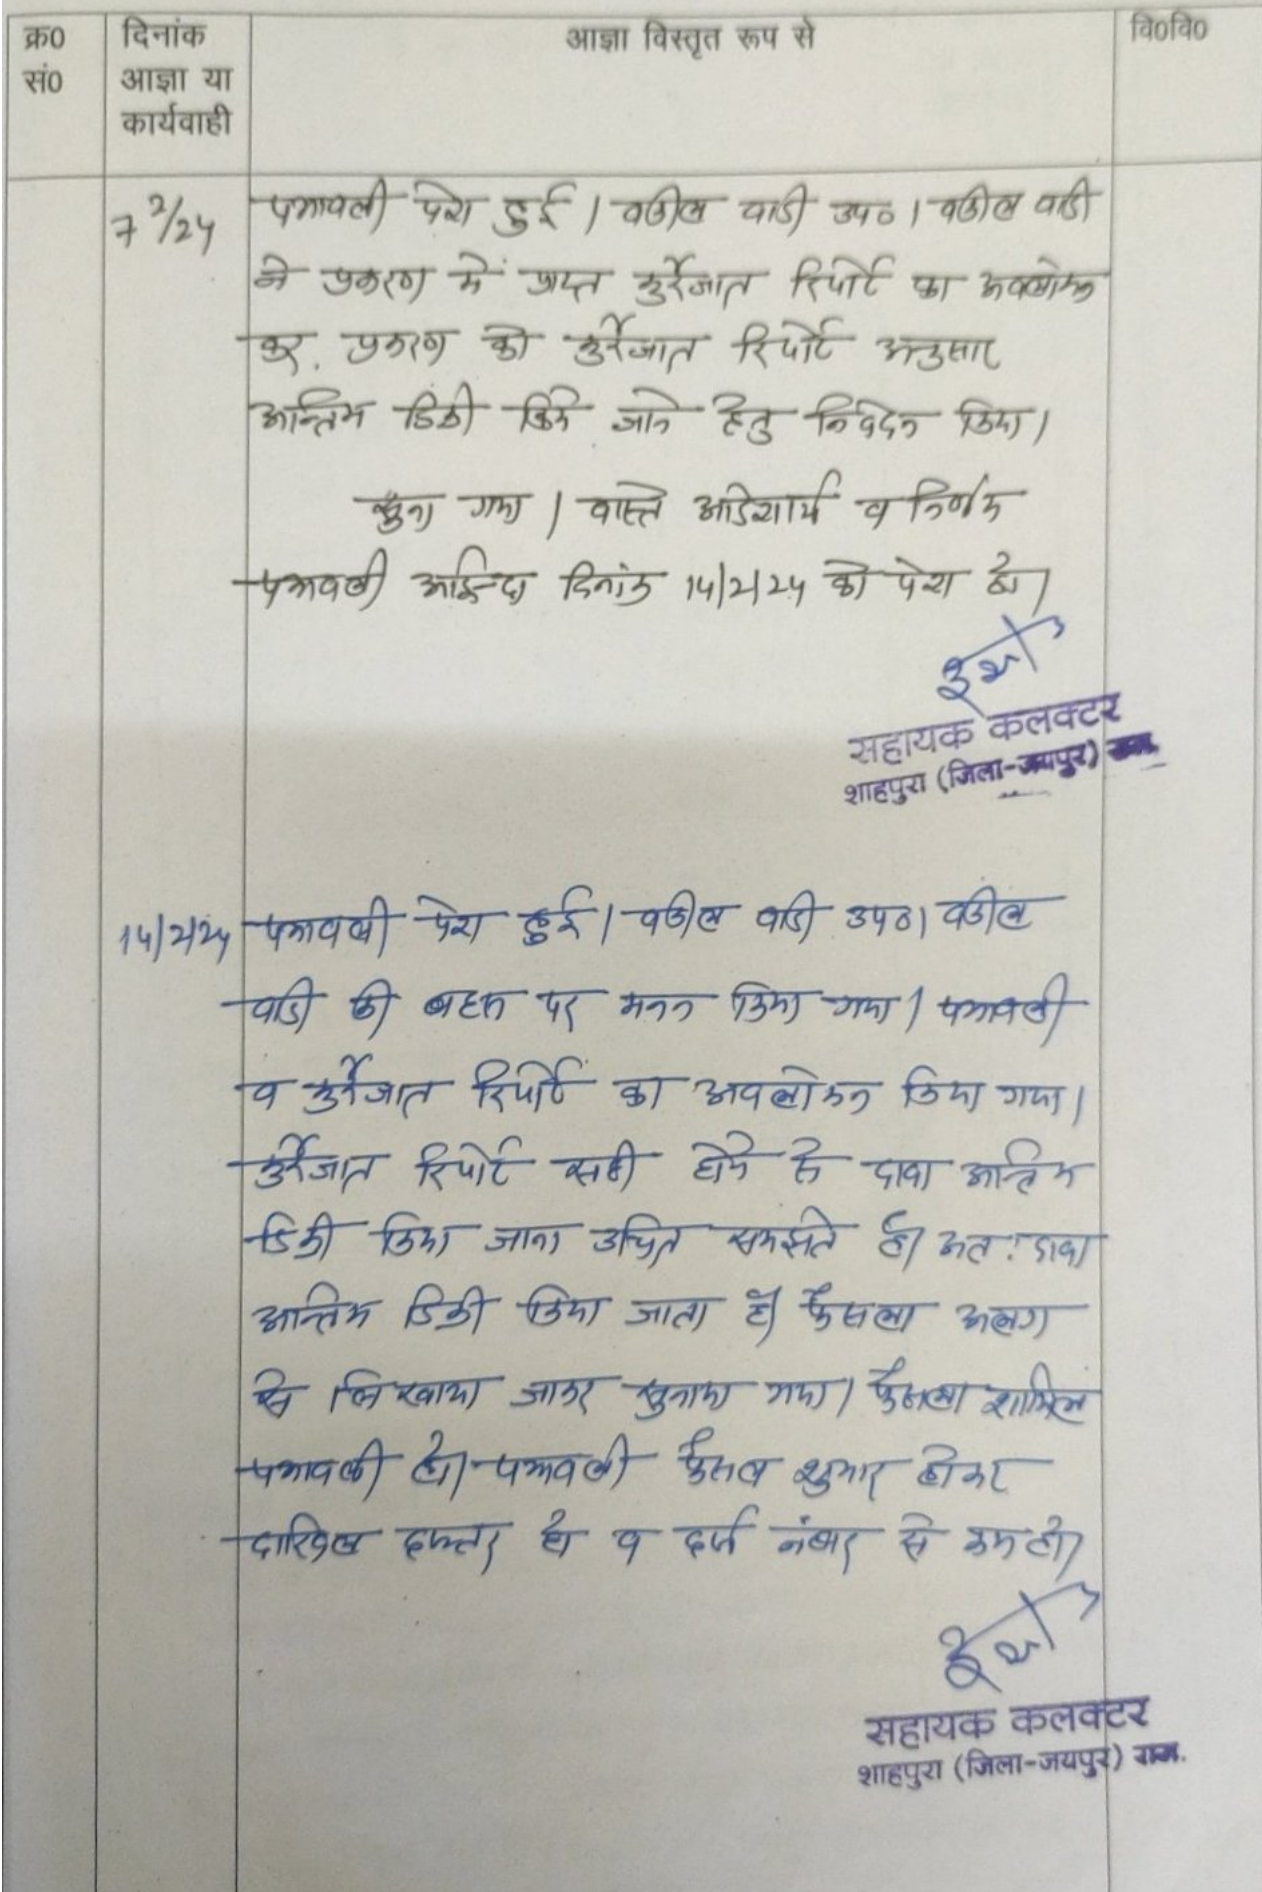 क्र0 सं0
दिनांक आज्ञा या कार्यवाही
आज्ञा विस्तृत रूप से
वि0वि0
7 2/24
पत्रावली पेश हुई। वकील वादी उप0। वकील वादी
ने प्रकरण में प्राप्त कुर्रेजात रिपोर्ट का अवलोकन
कर, प्रकरण को कुर्रेजात रिपोर्ट अनुसार
अन्तिम डिक्री किये जाने हेतु निवेदन किया।
सुना गया। वास्ते आदेशार्थ व निर्णय
पत्रावली आईन्दा दिनांक 14/2/24 को पेश हो।
सहायक कलक्टर
शाहपुरा (जिला-जयपुर) राज.
14/2/24
पत्रावली पेश हुई। वकील वादी उप0। वकील
वादी की बहस पर मनन किया गया। पत्रावली
व कुर्रेजात रिपोर्ट का अवलोकन किया गया।
कुर्रेजात रिपोर्ट सही होने से दावा अन्तिम
डिक्री किया जाना उचित समझते है। अत: दावा
अन्तिम डिक्री किया जाता है। फैसला अलग
से लिखाया जाकर सुनाया गया। फैसला शामिल
पत्रावली हो। पत्रावली फैसल शुमार होकर
दाखिल दफ्तर हो व दर्ज नंबर से कम हो।
सहायक कलक्टर
शाहपुरा (जिला-जयपुर) राज.